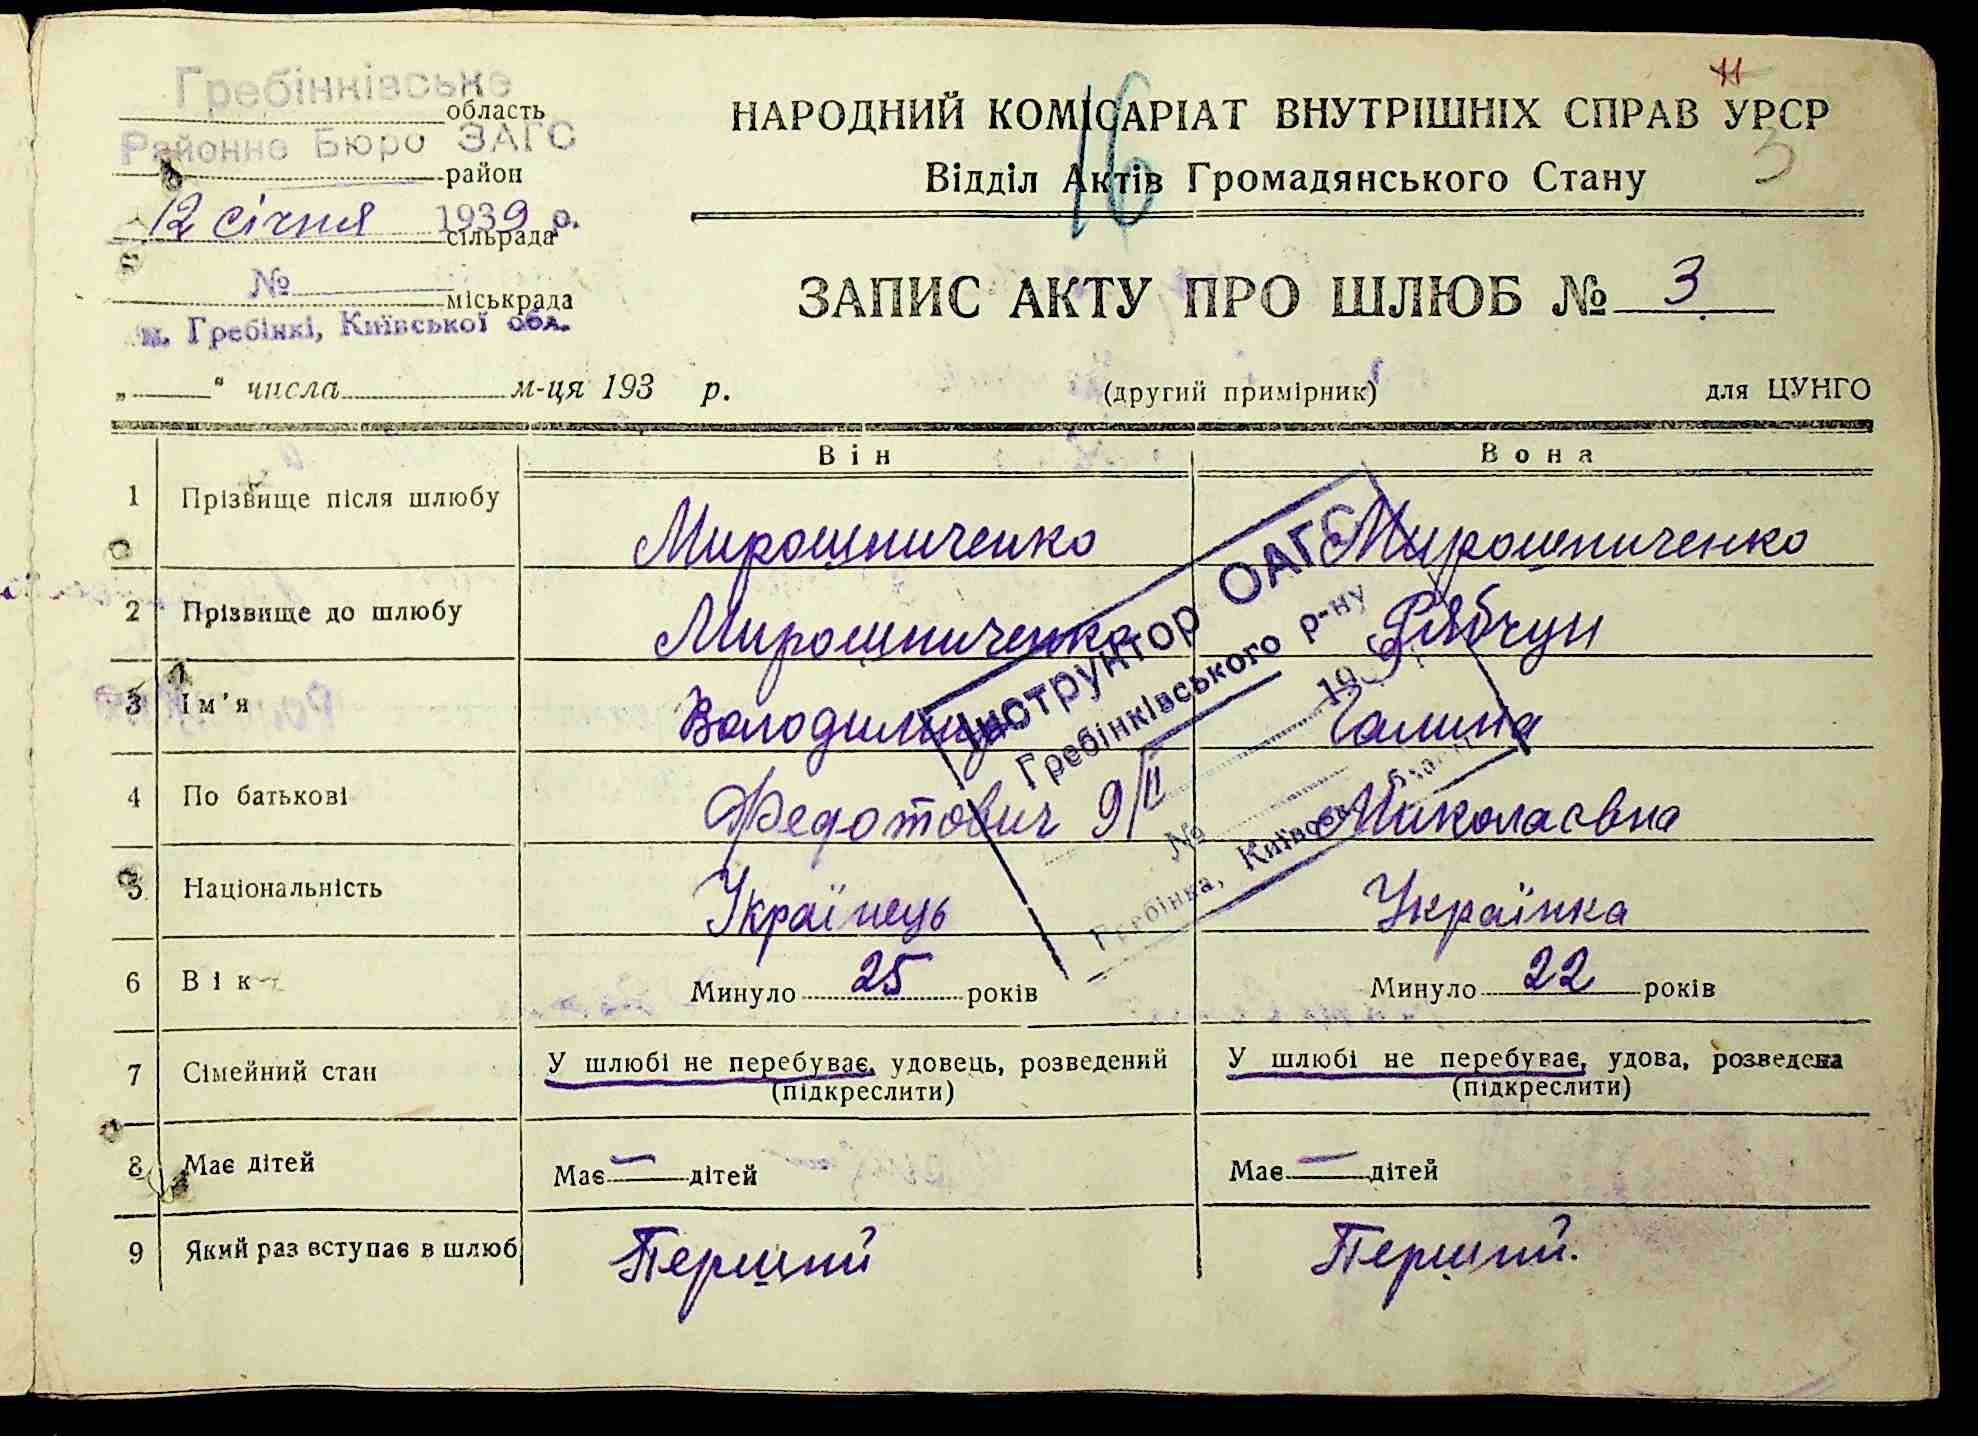 Гребінківське
область
Районне Бюро ЗАГС
район
12 січня 1939 р.
сільрада
№
міськрада
м. Гребінкі, Київської обл.
11
НАРОДНИЙ КОМІСАРІАТ ВНУТРІШНІХ СПРАВ УРСР
16
3
Відділ Актів Громадянського Стану
ЗАПИС АКТУ ПРО ШЛЮБ № 3
„ “ числа м-ця 193 р.
(другий примірник)
для ЦУНГО
Він Вона
1 Прізвище після шлюбу Мирошниченко Мирошниченко
2 Прізвище до шлюбу Мирошниченко Рябчун
3 Ім'я Володимир Галина
4 По батькові Федотович Миколаєвна
5 Національність Українець Українка
6 Вік Минуло 25 років Минуло 22 років
7 Сімейний стан У шлюбі не перебуває, удовець, розведений У шлюбі не перебуває, удова, розведена
(підкреслити) (підкреслити)
8 Має дітей Має — дітей Має — дітей
9 Який раз вступає в шлюб Перший Перший.
Інструктор ОАГС
Гребінківського р-ну
9/II 193
№
Гребінка, Київськ